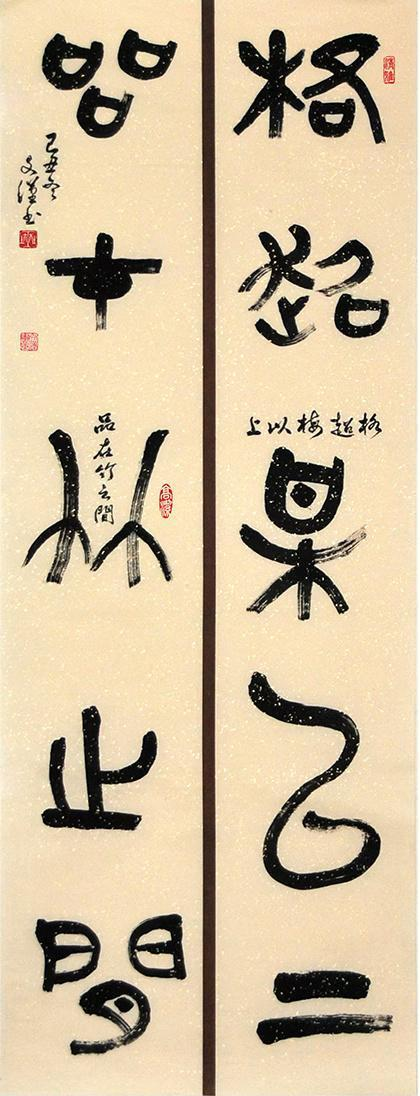 格超梅以上
格超梅以上
品在竹之間
品在竹之間
己丑冬
文漢书